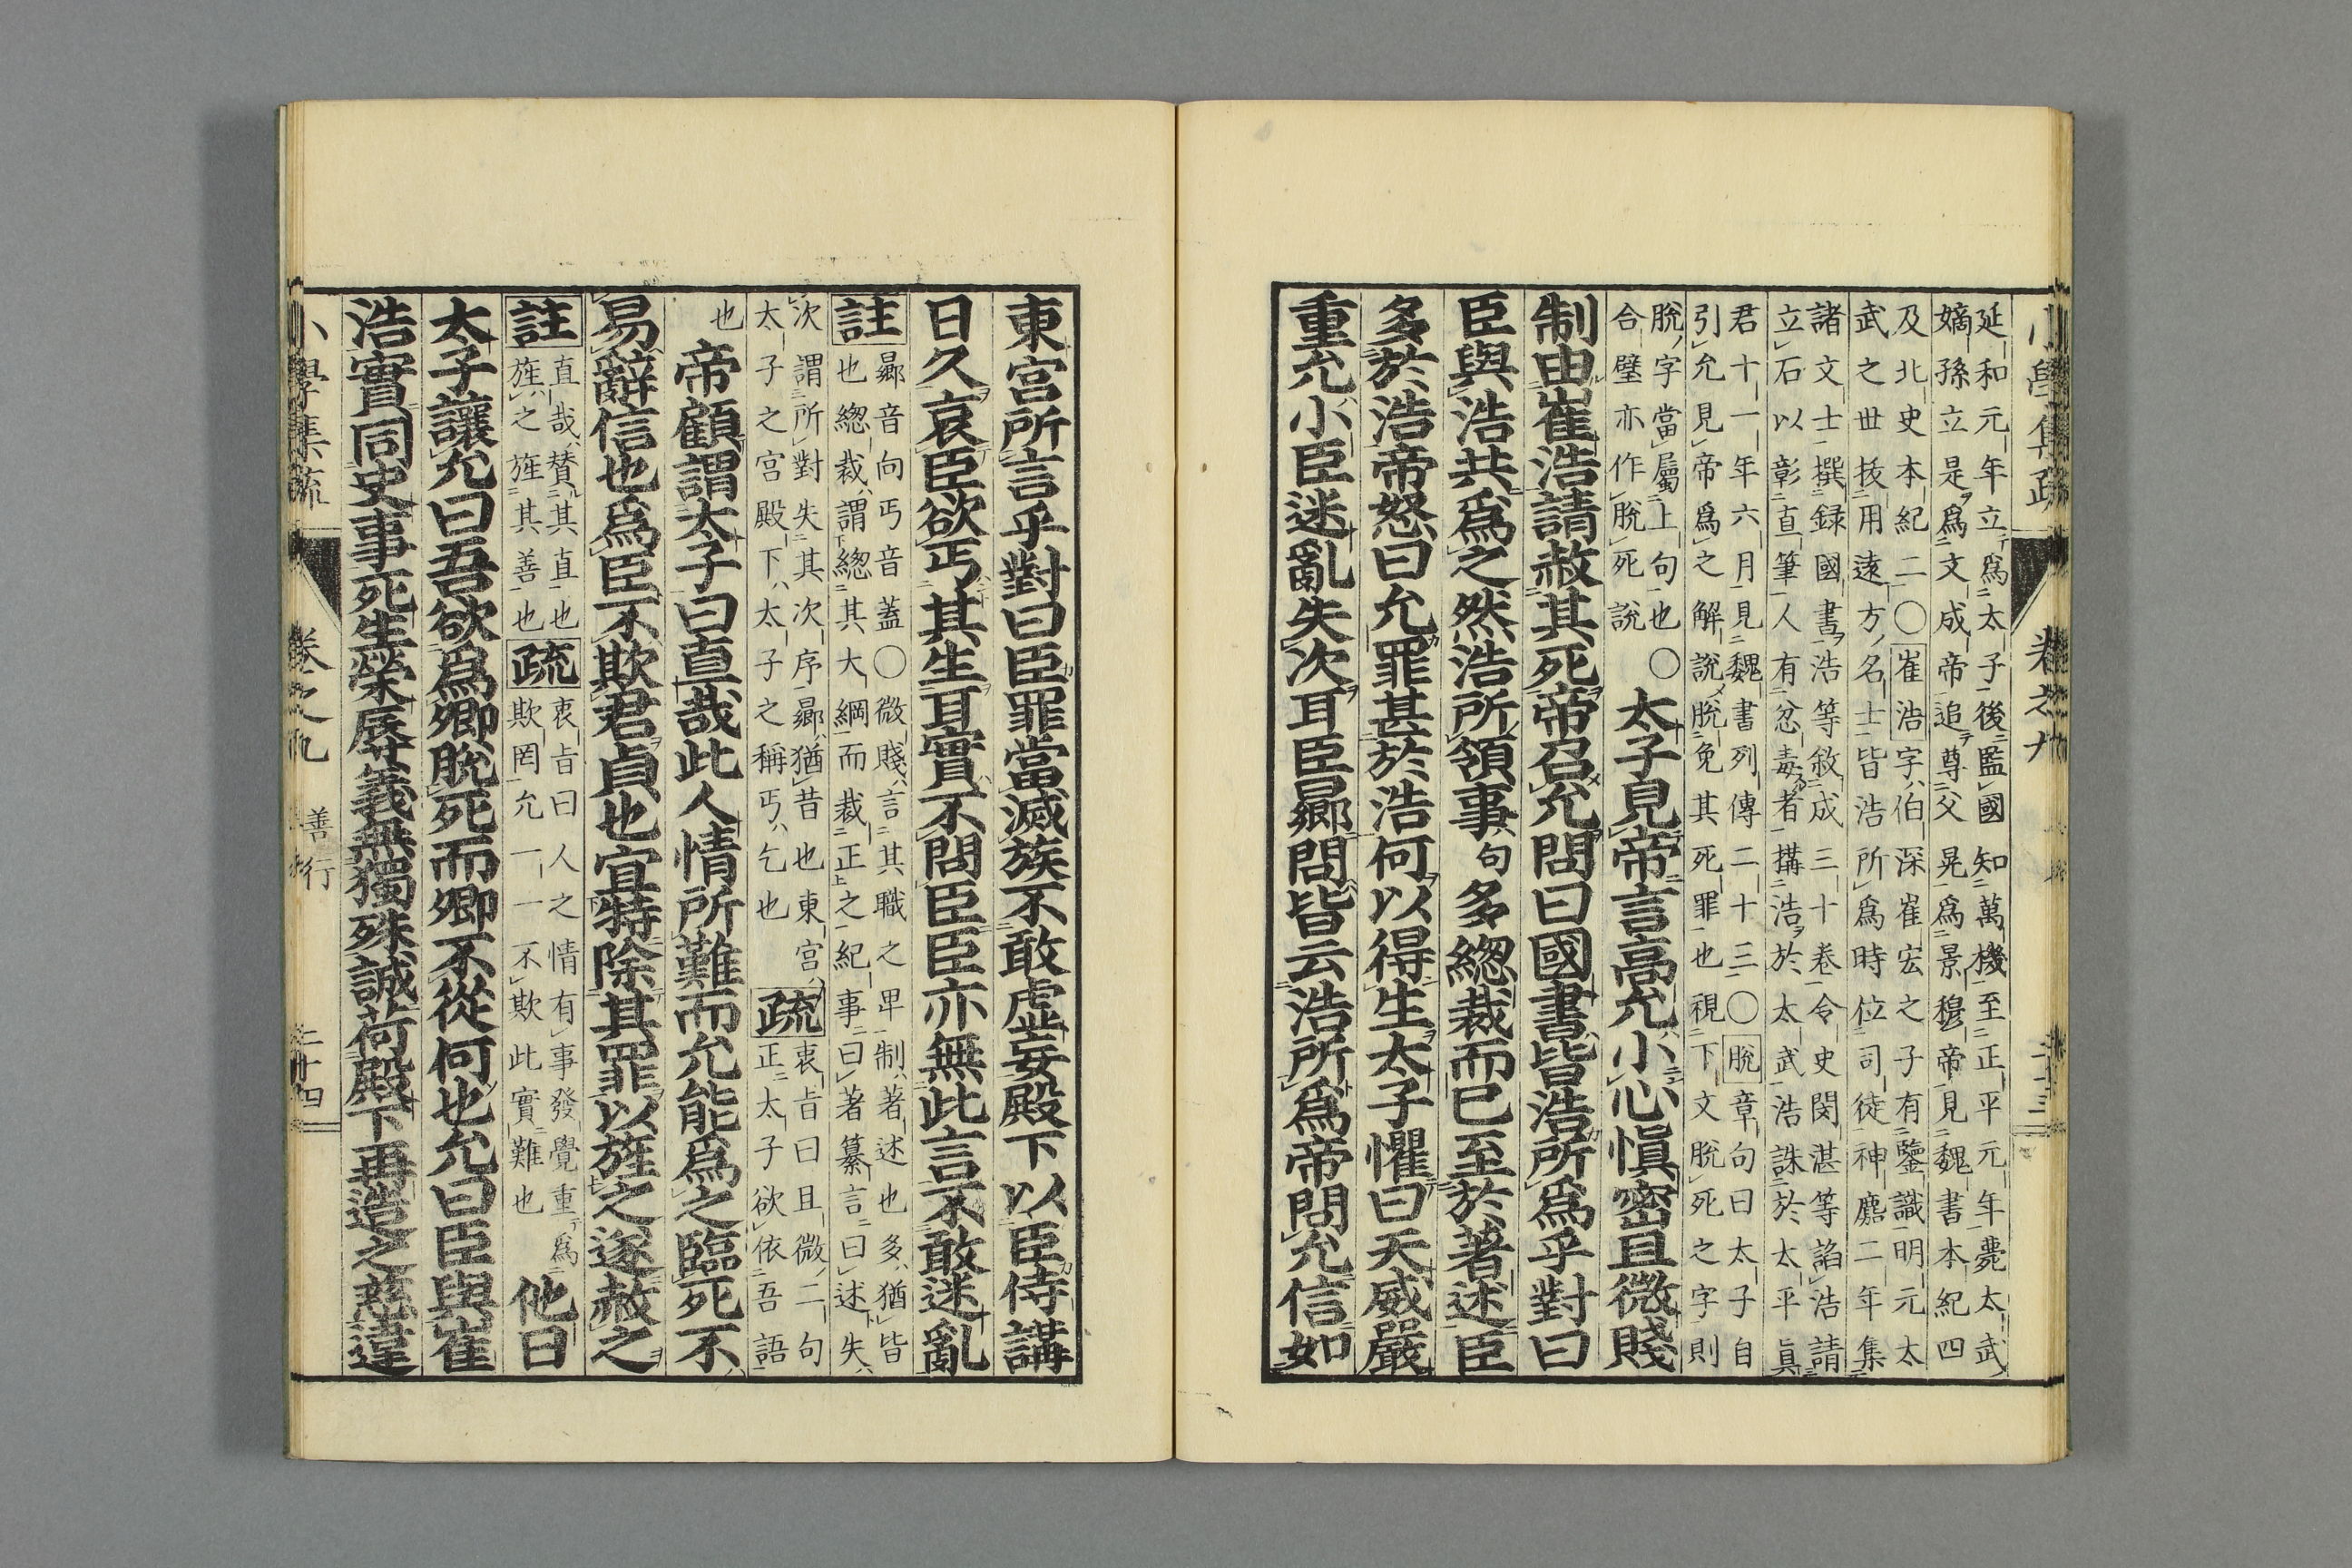 延和元年立爲太子後監國知萬機至正平元年薨太武
嫡孫立是爲文成帝追尊父晃爲景穆帝見魏書本紀四
及北史本紀二〇崔浩字伯深崔宏之子有鑒識明元太
武之世抜用遠方名士皆浩所爲時位司徒神䴥二年集
諸文士撰録國書浩等敘成三十卷令史閔湛等諂浩請
立石以彰直筆人有忿毒者搆浩於太武浩誅於太平眞
君十一年六月見魏書列傳二十三〇脫章句曰太子自
引允見帝爲之解說脫免其死罪也視下文脫死之字則
脫字當屬上句也〇
合璧亦作脫死說
太子見帝言高允小心愼密且微賤
制由崔浩請赦其死帝召允問曰國書皆浩所爲乎對曰
臣與浩共爲之然浩所領事句多總裁而已至於著述臣
多於浩帝怒曰允罪甚於浩何以得生太子懼曰天威嚴
重允小臣迷亂失次耳臣曏問皆云浩所爲帝問允信如
小學集疏 卷之九
東宮所言乎對曰臣罪當滅族不敢虛妄殿下以臣侍講
日久哀臣欲丐其生耳實不問臣臣亦無此言不敢迷亂
註
曏音向丐音蓋〇微賤言其職之卑制著述也多猶皆
也總裁謂總其大綱而裁正之紀事曰著纂言曰述失
次謂所對失其次序曏猶昔也東宮
太子之宮殿下太子之稱丐乞也
疏
衷旨曰且微二句
正太子欲依吾語
也
帝顧謂太子曰直哉此人情所難而允能爲之臨死不
易辭信也爲臣不欺君貞也宜特除其罪以旌之遂赦之
註
直哉賛其直也
旌之旌其善也
疏
衷旨曰人之情有事發覺重爲
欺罔允一一不欺此實難也
他日
太子讓允曰吾欲爲卿脫死而卿不從何也允曰臣與崔
浩實同史事死生榮辱義無獨殊誠荷殿下再造之慈違
小學集疏 卷之九 善行 二十四